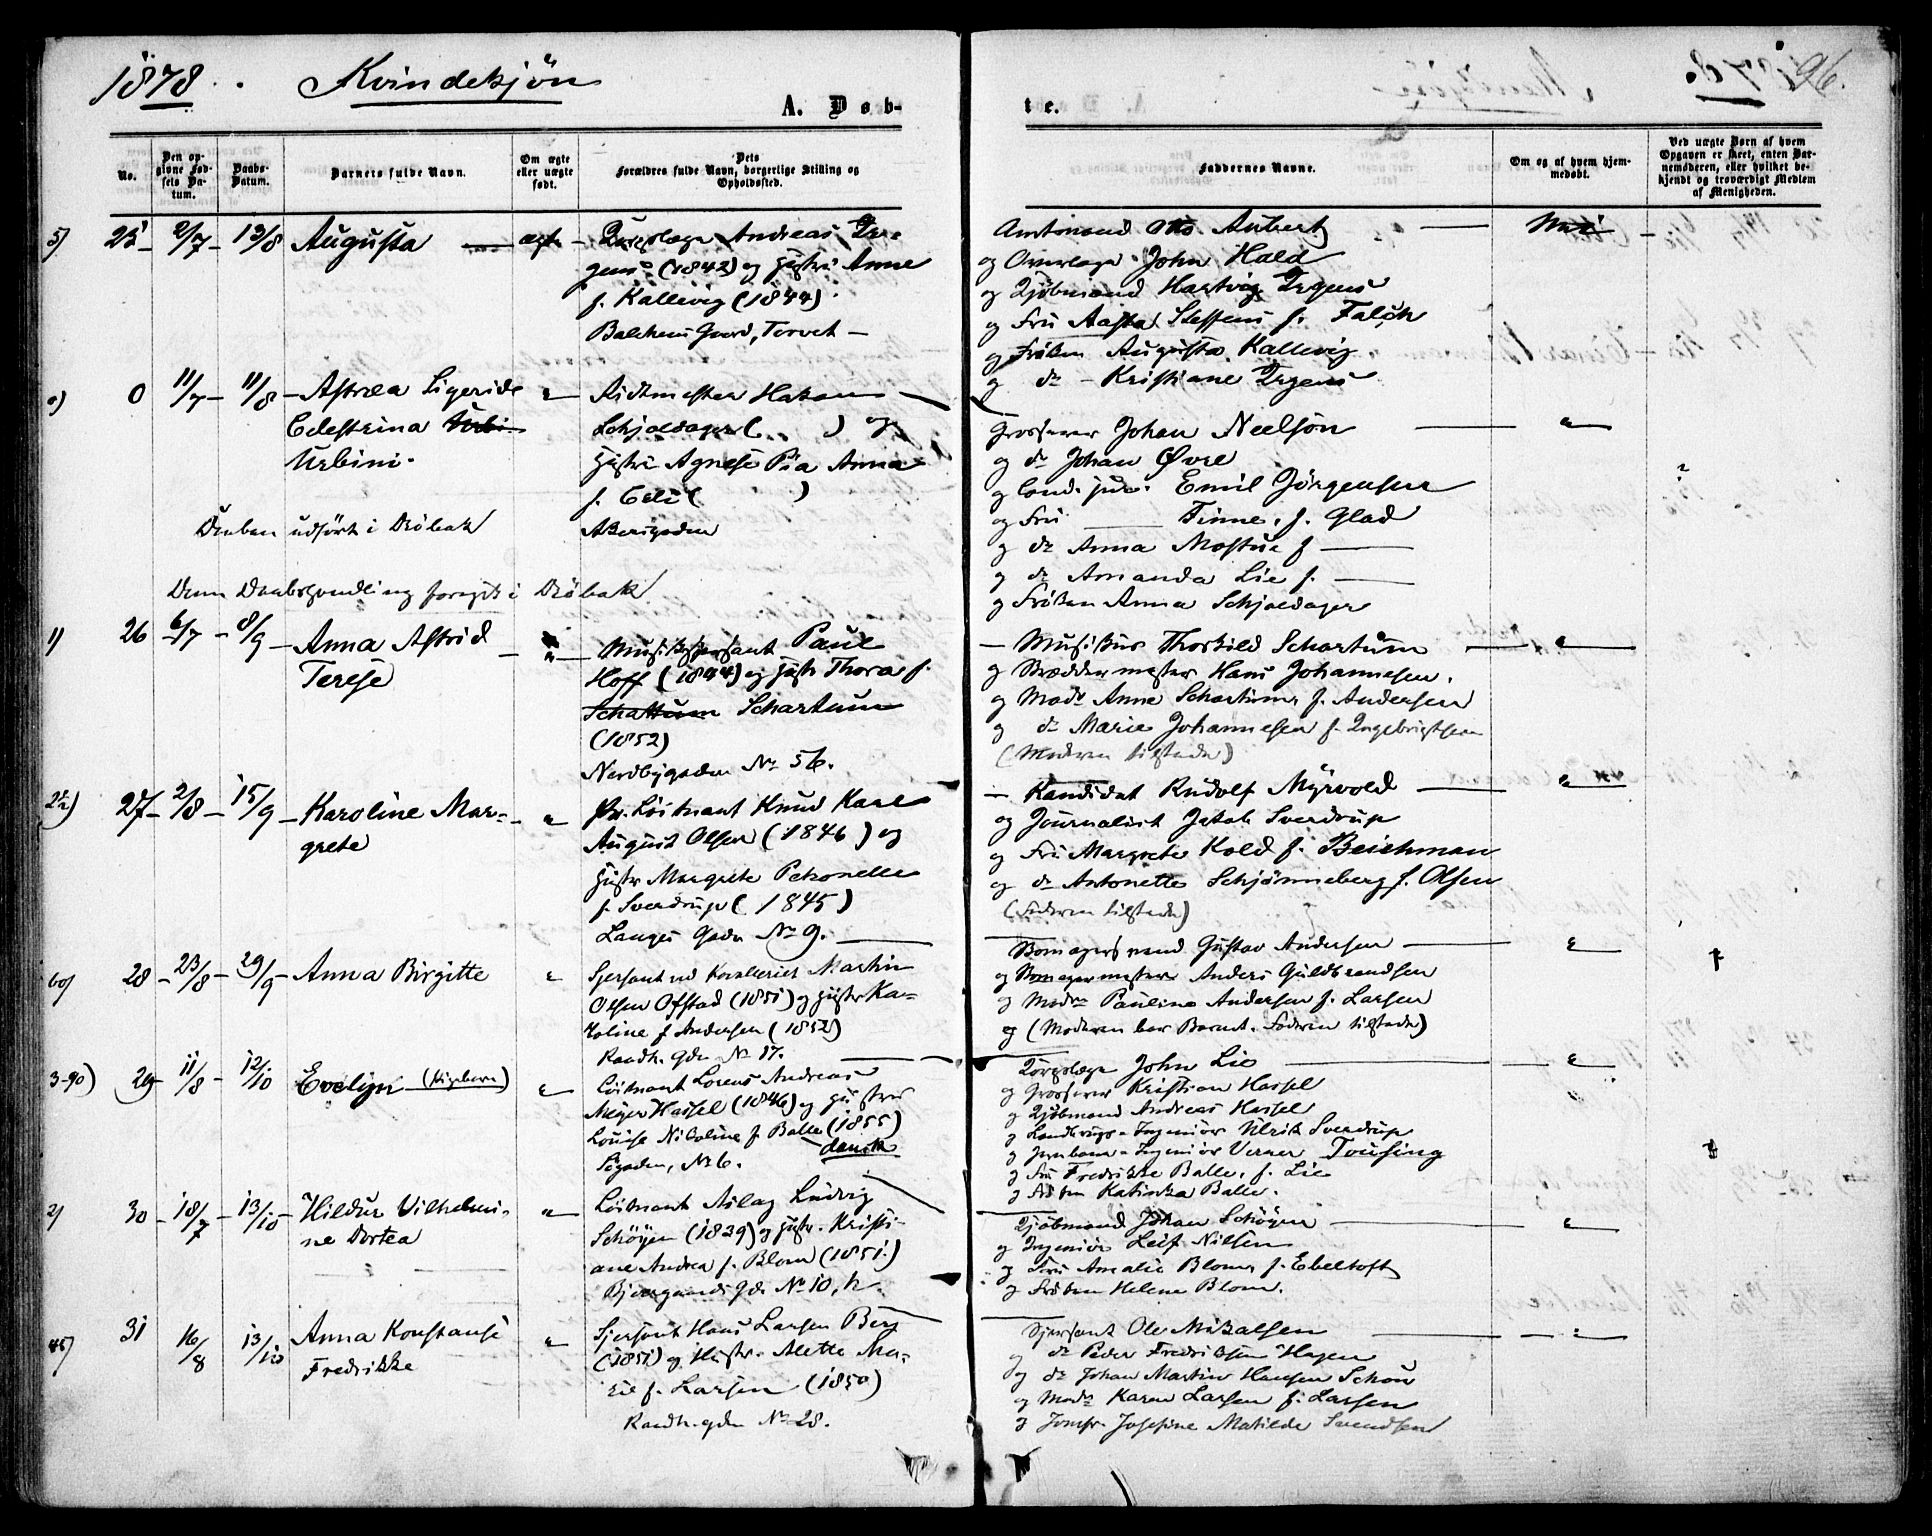 1878. Kvindekjön
96.
A. Døb-
te.
No.
Den op-
givne Fød-
sels Da-
tum.
Daabs-
Datum.
Barnets fulde Navn.
Om ægte
eller uægte
født.
Dets
Forældres fulde Navn, borgerlige Stilling og
Opholdssted.
Faddernes Navne.
Om og af hvem hjem-
medøbt.
Ved uægte Børn af hvem
Opgaven er skeet, enten Bar-
nemoderen, eller hvilket be-
kjendt og troværdigt Medlem
af Menigheden.
5) 25 - 2/7 - 13/8 Augusta ægte - Andreas Ir-
gens (1842) og Hustru Anne
f. Kallevig (1844).
Balchens Gaard, Torvet -
Amtmand Otto Aubert
og Overlæge John Hald
og Kjöbmand Hartvig Irgens
og Fru Aasta Steffens f. Falch
og Fröken Augusta Kallevig
og do - Kristiane Irgens
0 11/7 - 11/8 - Astræa Ligeride
Celestrina Urbi-
Urbini.
Ridtmester Hakon
Schjoldager ( ) og
Hustru Agnese Pia Anna
f. Celi ( )
Akersgaden
Daaben udført i Dröbak
Denne Daabshandling foregik i Dröbak
Grosserer Johan Neelson
og do Johan Øvre
og Cand. jur. Emil Jörgensen
og Fru Finne, f. Glad
og do Anna Mostue f
og do Amanda Lie f.
og Fröken Anna Schjoldager
1) 26 6/7 - 8/9 - Anna Astrid
Terese
Paul
Hoff (1844) og Hustr Thora f.
Schattum Schartum
(1852)
Nordbygaden No 56.
- Musikus Thorkild Schartum
og Hans Johannesen.
og Mad. Anne Schartum f. Andersen
og do Marie Johannesen f. Ingebrigtsen
(Moderen tilstede)
27 - 2/8 - 15/9 - Karoline Mar-
grete
Pr. Löitnant Knud Karl
August Olsen (1846) og
Hustr Margrete Petronelle
f. Sverdrup (1845)
Langes Gade No 9.
- Kandidat Rudolf Myrvold
og Journalist Jakob Sverdrup
og Fru Margrete Kold f. Beichman
og do Antonette Schjönneberg f. Olsen
(Faderen tilstede)
60) 28 - 23/8 - 29/9 - Anna Birgitte
Sjersant ved Kavalleriet Martin
Olsen Ofstad (1851) og Hustr Ka-
roline f Andersen (1852)
Raadh. gdn No 17.
Bomagersvend Gustav Andersen
og Bomagermester Anders Guldbrandsen
og Mad. Pauline Andersen f. Larsen
og (Moderen bar Barnet. Faderen tilstede)
3-90) 29 - 11/8 - 12/10 Evelyn
Löitnant Lorens Andreas
Meyer Hassel (1846) og Hustru
Louise Nikoline f Balle (1855)
dansk
Sögaden, No 6.
John Lie
og Grosserer Kristian Hassel
og Kjöbmand Andreas Hassel
og Landbrugs-Ingeniör Ulrik Sverdrup
og Jernbane-Ingeniör Verner Tousing
og Fru Fredrikke Balle, f. Lie
og Fröken Katinka Balle.
2) 30 - 18/7 - 13/10 - Hildur Vilhelmi-
ne Dortea
Löitnant Aslag Ludvig
Schöyen (1839) og Hustr. Kristi-
ane Andrea f. Blom (1851.)
No 10, h.
Kjöbmand Johan Schöyen
og Ingeniör Leif Nilsen
og Fru Amalie Blom, f. Ebeltoft
og Fröken Helene Blom.
31 16/8 13/10 Anna Konstanse
Fredrikke
Sjersant Hans Larsen Berg
(1851) og Hustr. Alette Ma-
rie f. Larsen (1850)
Raadh. gdn No 28.
Sjersant Ole Mikalsen
og do Peder Fredriksen Hagen
og do Johan Martin Hansen Schou
og Mad. Karen Larsen f. Larsen
og Jomfr. Josefine Matilde Svendsen